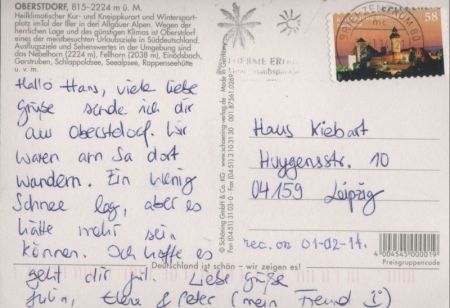 OBERSTDORF, 815–2224 m Ü. M.
Heilklimatischer Kur- und Kneippkurort und Wintersport-
platz im Tal der Iller in den Allgäuer Alpen. Wegen der
herrlichen Lage und des günstigen Klimas ist Oberstdorf
einer der meistbesuchten Urlaubsziele in Süddeutschland.
Ausflugsziele und Sehenswertes in der Umgebung sind
das Nebelhorn (2224 m), Fellhorn (2038 m), Einödsbach,
Gerstruben, Schlappoldsee, Seealpsee, Rappenseehütte
u. v. m.
Hallo Hans, viele liebe
Grüße sende ich dir
aus Oberstdorf. Wir
waren am Sa dort
wandern. Ein wenig
Schnee lag, aber es
hätte mehr sein
können. Ich hoffe es
geht dir gut. Liebe Grüße
Julia, & Peter (mein Freund ☺)
Deutschland ist schön – wir zeigen es!
© Schöning GmbH & Co. KG
Fax (04 51) 3 10 31 30
www.schoening-verlag.de
Made in Germany
58
Haus Kiebart
Huygensstr. 10
04159 Leipzig
rec. on 01-02-14.
4 004545 000019
Preisgruppencode